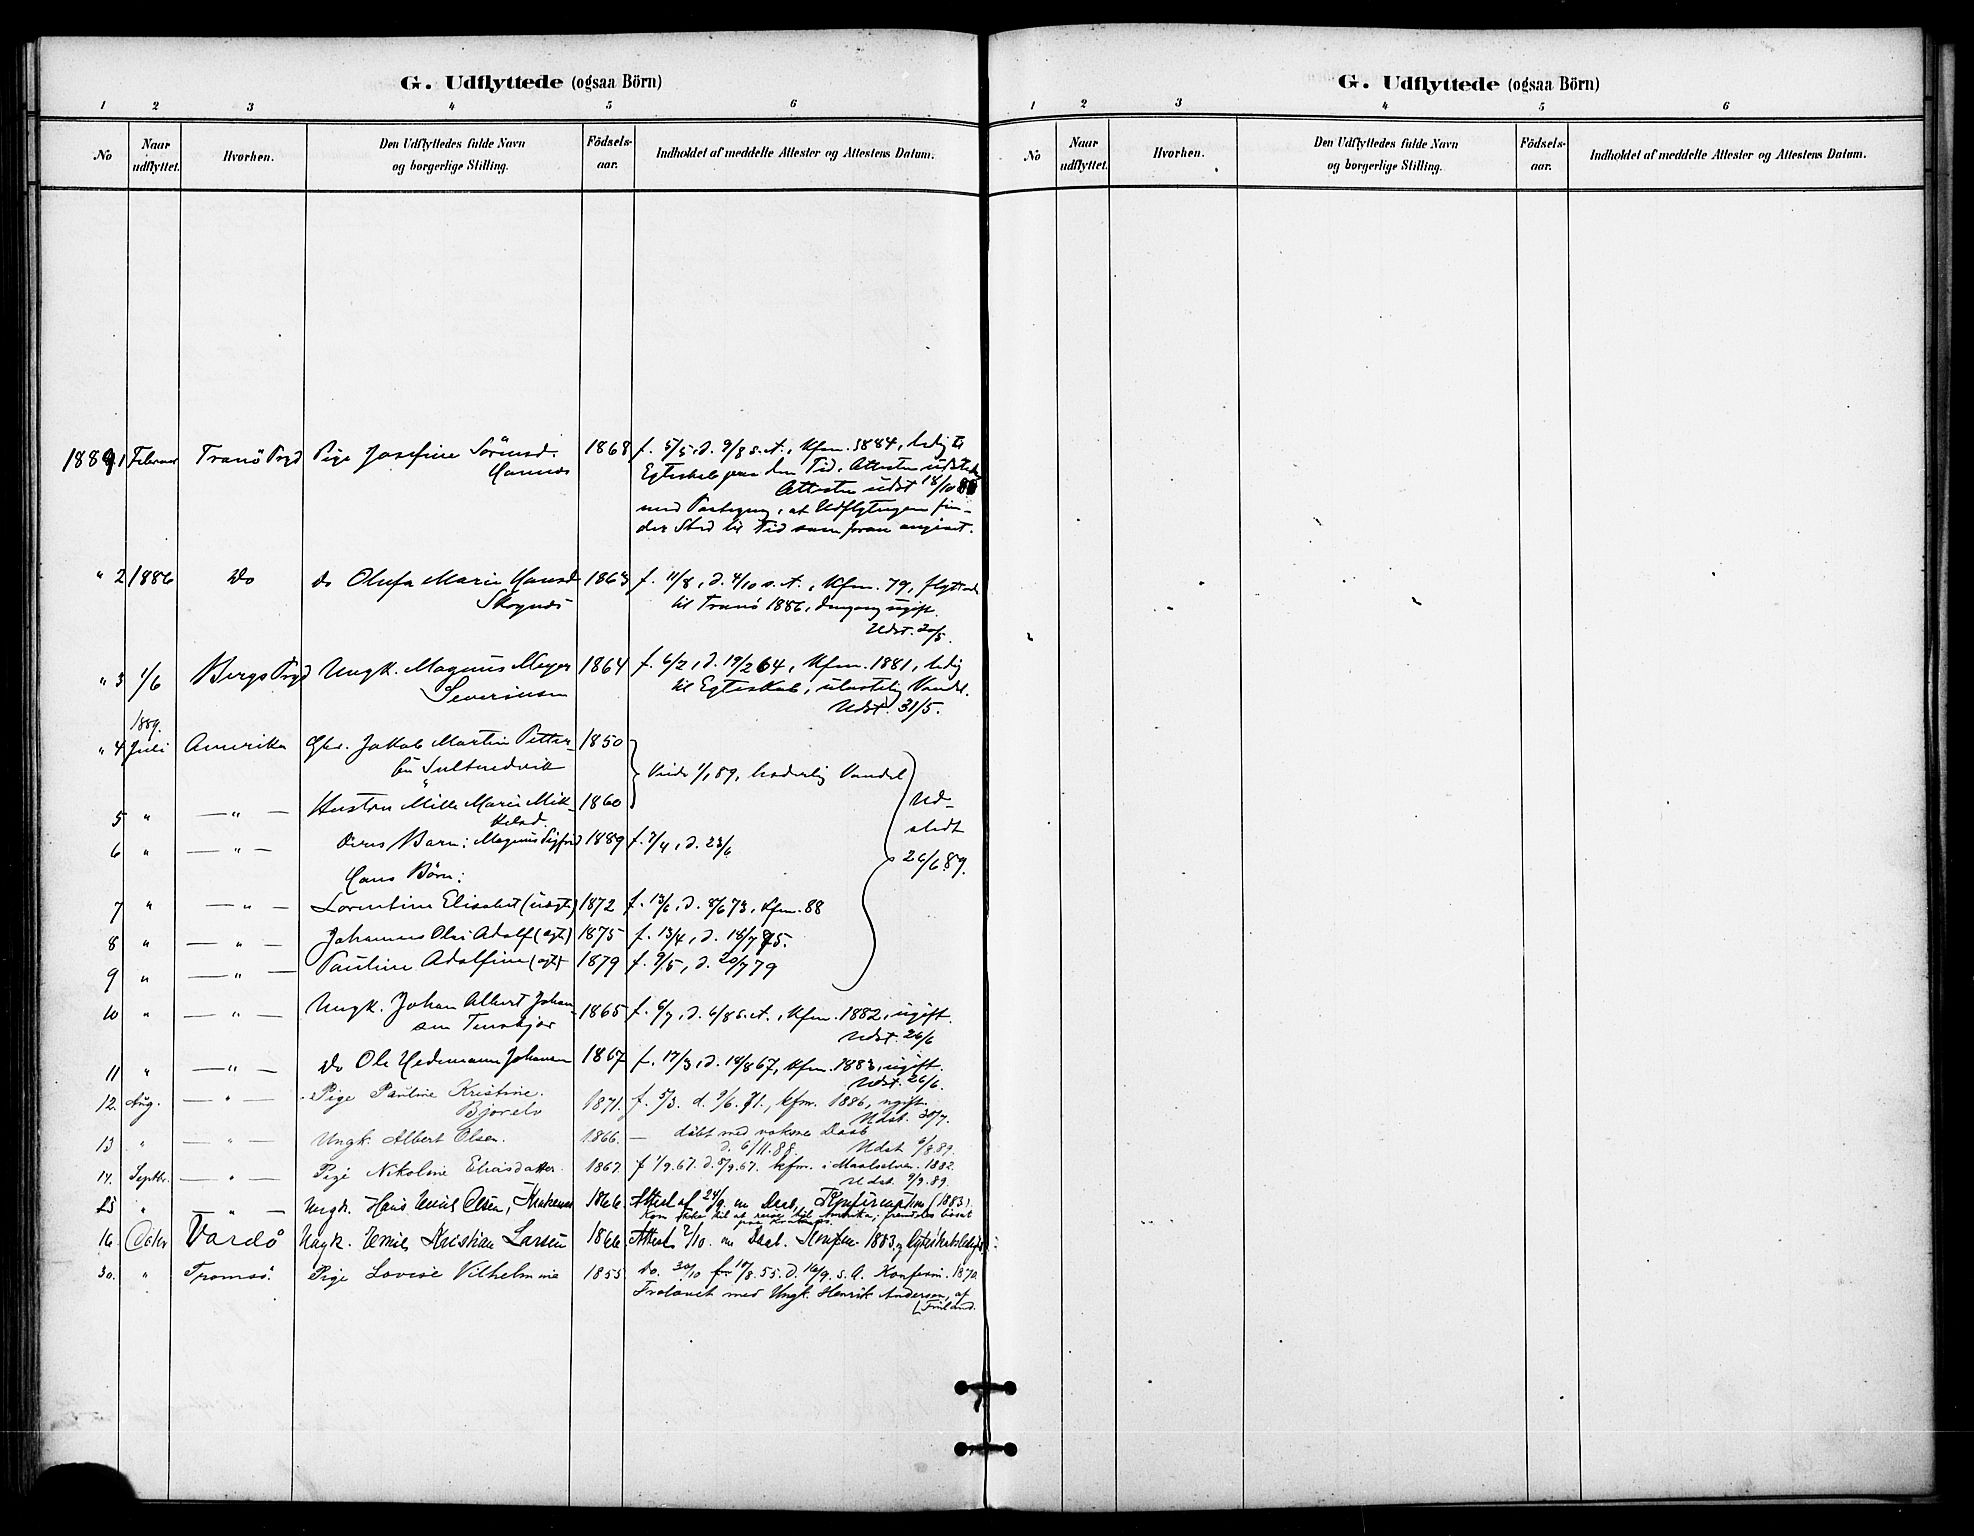 G. Udflyttede (ogsaa Börn)
1 2 3 4 5 6
No Naar udflyttet. Hvorhen. Den Udflyttedes fulde Navn og borgerlige Stilling. Födsels-aar. Indholdet af meddelte Attester og Attestens Datum.
1889 1 Februar Tranö Prgd Pige Josefine Sörensd. 1868 f. 5/5, d. 9/8 s.A., Kfm. 1884, ledig til
Egteskab paa den Tid. Attesten
Attesten udst 18/10
med Paategng, at Udflytningen fin-
der Sted til Tid som foran angivet.
" 2 1886 Do do Olufa Marie Hansd 1863 f. 11/8, d. 4/10 s.A., Kfm. 79, flyttede
Skognæs til Tranö 1886, dengang ugift.
Udst. 20/5.
" 3 1/6 Bergs Prgd Ungk. Magnus Meyer 1864 f. 6/2, d. 19/2 64, Kfm. 1881, ledig
Severinsen til Egteskab, ulastelig Vandel.
Udst. 31/5.
1889.
" 4 Juli Amerika Gbr. Jakob Martin Petter- 1850
Viede 89, hæderlig Vandel
5 " — " — Hustru Mille Marie Mik- 1860 Ud-
kelsd. stedt
6 " — " — Deres Barn: Magnus Sigfrid 1889 f. 7/4, d. 23/6 26/6 89.
Hans Börn:
7 " — " — Lorentine Elisabet 1872 f. 13/6, d. 8/6 73, Kfm. 88
8 " — " — Johannes Olai Adolf (egt.) 1875 f. 13/4, d. 18/7 75.
9 " — " — Pauline Adolfine (egt.) 1879 f. 9/5, d. 20/7 79
10 " — " — Ungk. Johan Albert Johan- 1865 f. 6/7, d. 6/8 s.A., Kfm. 1882, ugift.
sen Udst. 26/6
11 " — " — Do Ole Hedemann Johansen 1867 f. 17/3, d. 18/8 67, Kfm. 1883, ugift.
Udst. 26/6.
12. Aug. — " — Pige Pauline Kristine. 1871. f. 5/3. d. 9/6. 71., kfm. 1886, ugift.
Bjorelv Udst. 30/7.
13 " — " — Ungk. Albert Olsen. 1866. — döbt med voksnes Daab
d. 6/11. 88. Udst 6/8 89.
14. Septbr. — " — Pige Nikoline Eliasdatter. 1867. f 1/9. 67. d. 8/9. 67. kfm. i Maalselven. 1882.
Udst. 9/9. 89.
15 " — " — Ungk. Hans Emil Olsen, 1866. Attest af 24/9. om Daab, Konfirmation (1883).
Kom ikke til at reise til Amerika;
16. Oktbr Vardö Ungk. Emil Kristian Larsen 1866. Attest 2/10. om Daab. Konfm. 1883 og
30. " Tromsö. Pige Lovise Vilhelmine 1855 Do. 30/10 f 17/8. 55. d. 16/9. s. A. Konferm. 1870.
Trolovet med Ungk. Henrik Andersen, af
Finland.
G. Udflyttede (ogsaa Börn)
1 2 3 4 5 6
No Naar udflyttet. Hvorhen. Den Udflyttedes fulde Navn og borgerlige Stilling. Födsels-aar. Indholdet af meddelte Attester og Attestens Datum.